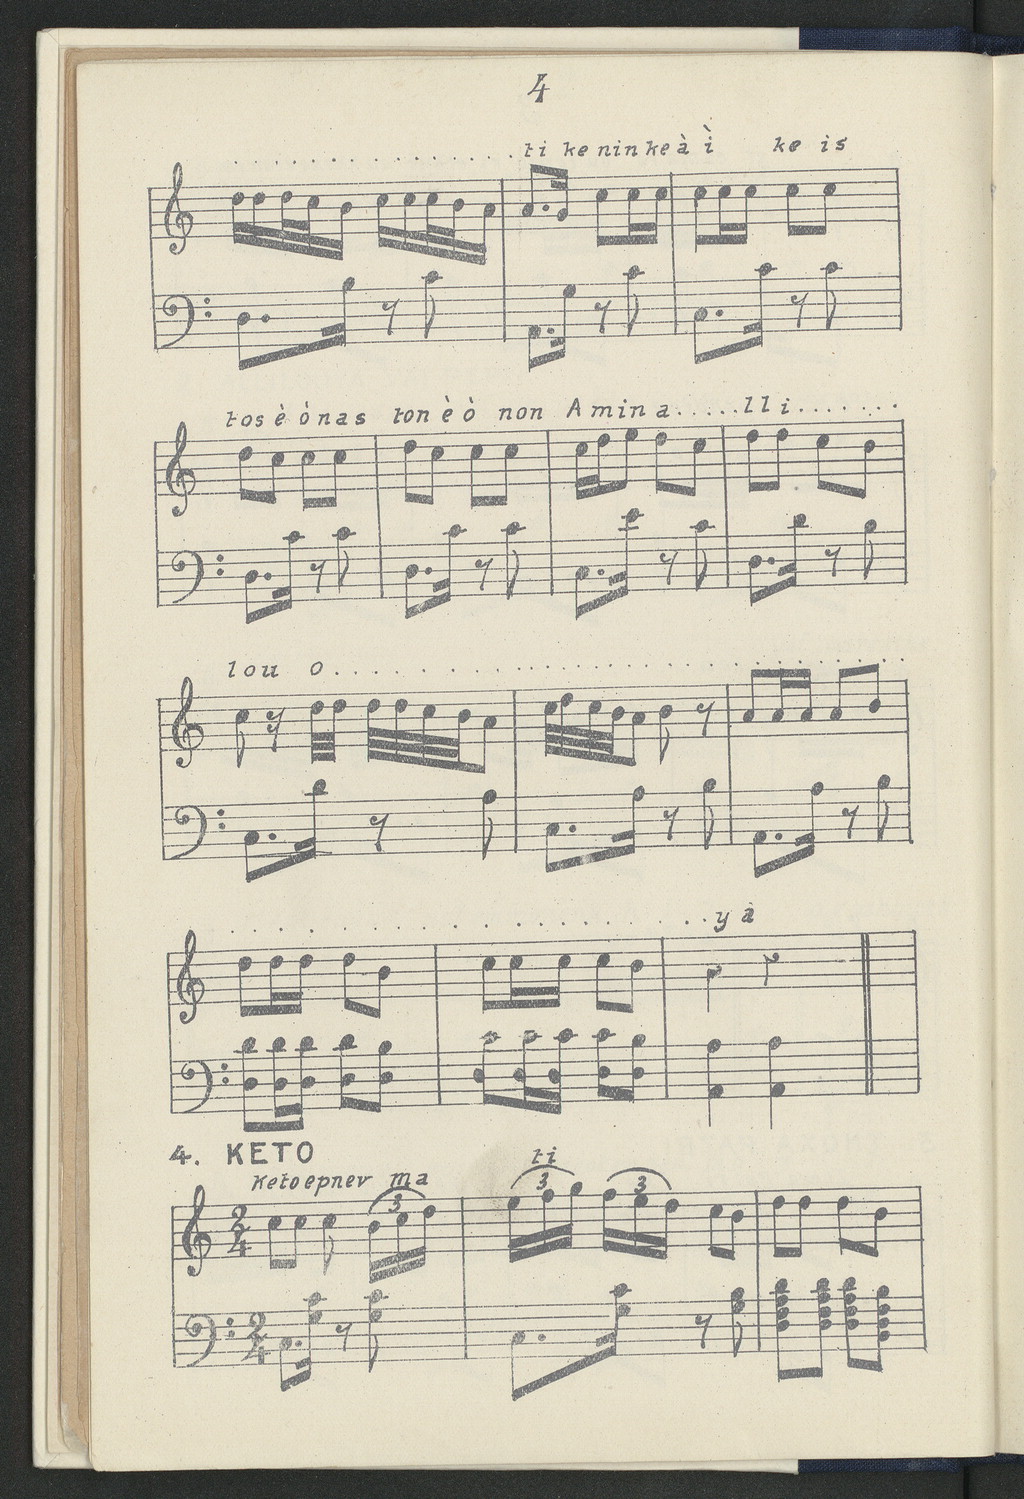 4
. . . . . . . . . . . . . . . . ti ke ninke à ì ke is
tos è ònas ton è ò non Amina.....lli.......
lou o. . . . . . . . . . . . . . . . . . . .
. . . . . . . . . . . . . . yà
4. KETO
Ketoepnev ma ti
3 3 3
2 4
2 4